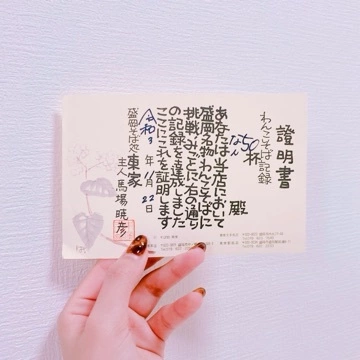 證明書
わんこそば記録
50杯
なん 殿
あなたは当店において
盛岡名物わんこそばに
挑戦みごとに右の通り
の記録を達成しました
ここにこれを証明します
令和3年11月22日
盛岡そば処 東家
主人 馬場暁彦